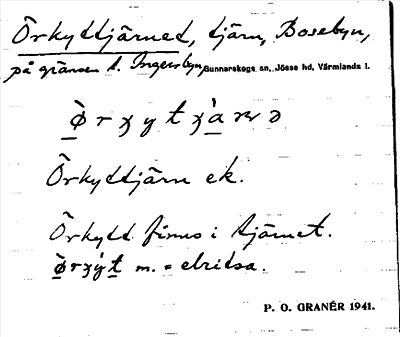 Örkyttjärnet, tjärn, Bosebyn,
på gränsen t. Ingersbyn, Gunnarskogs sn, Jösse hd, Värmlands l.
Örkyttjärn ek.
Örkytt finns i tjärnet.
m. = elritsa.
P. O. GRANÉR 1941.